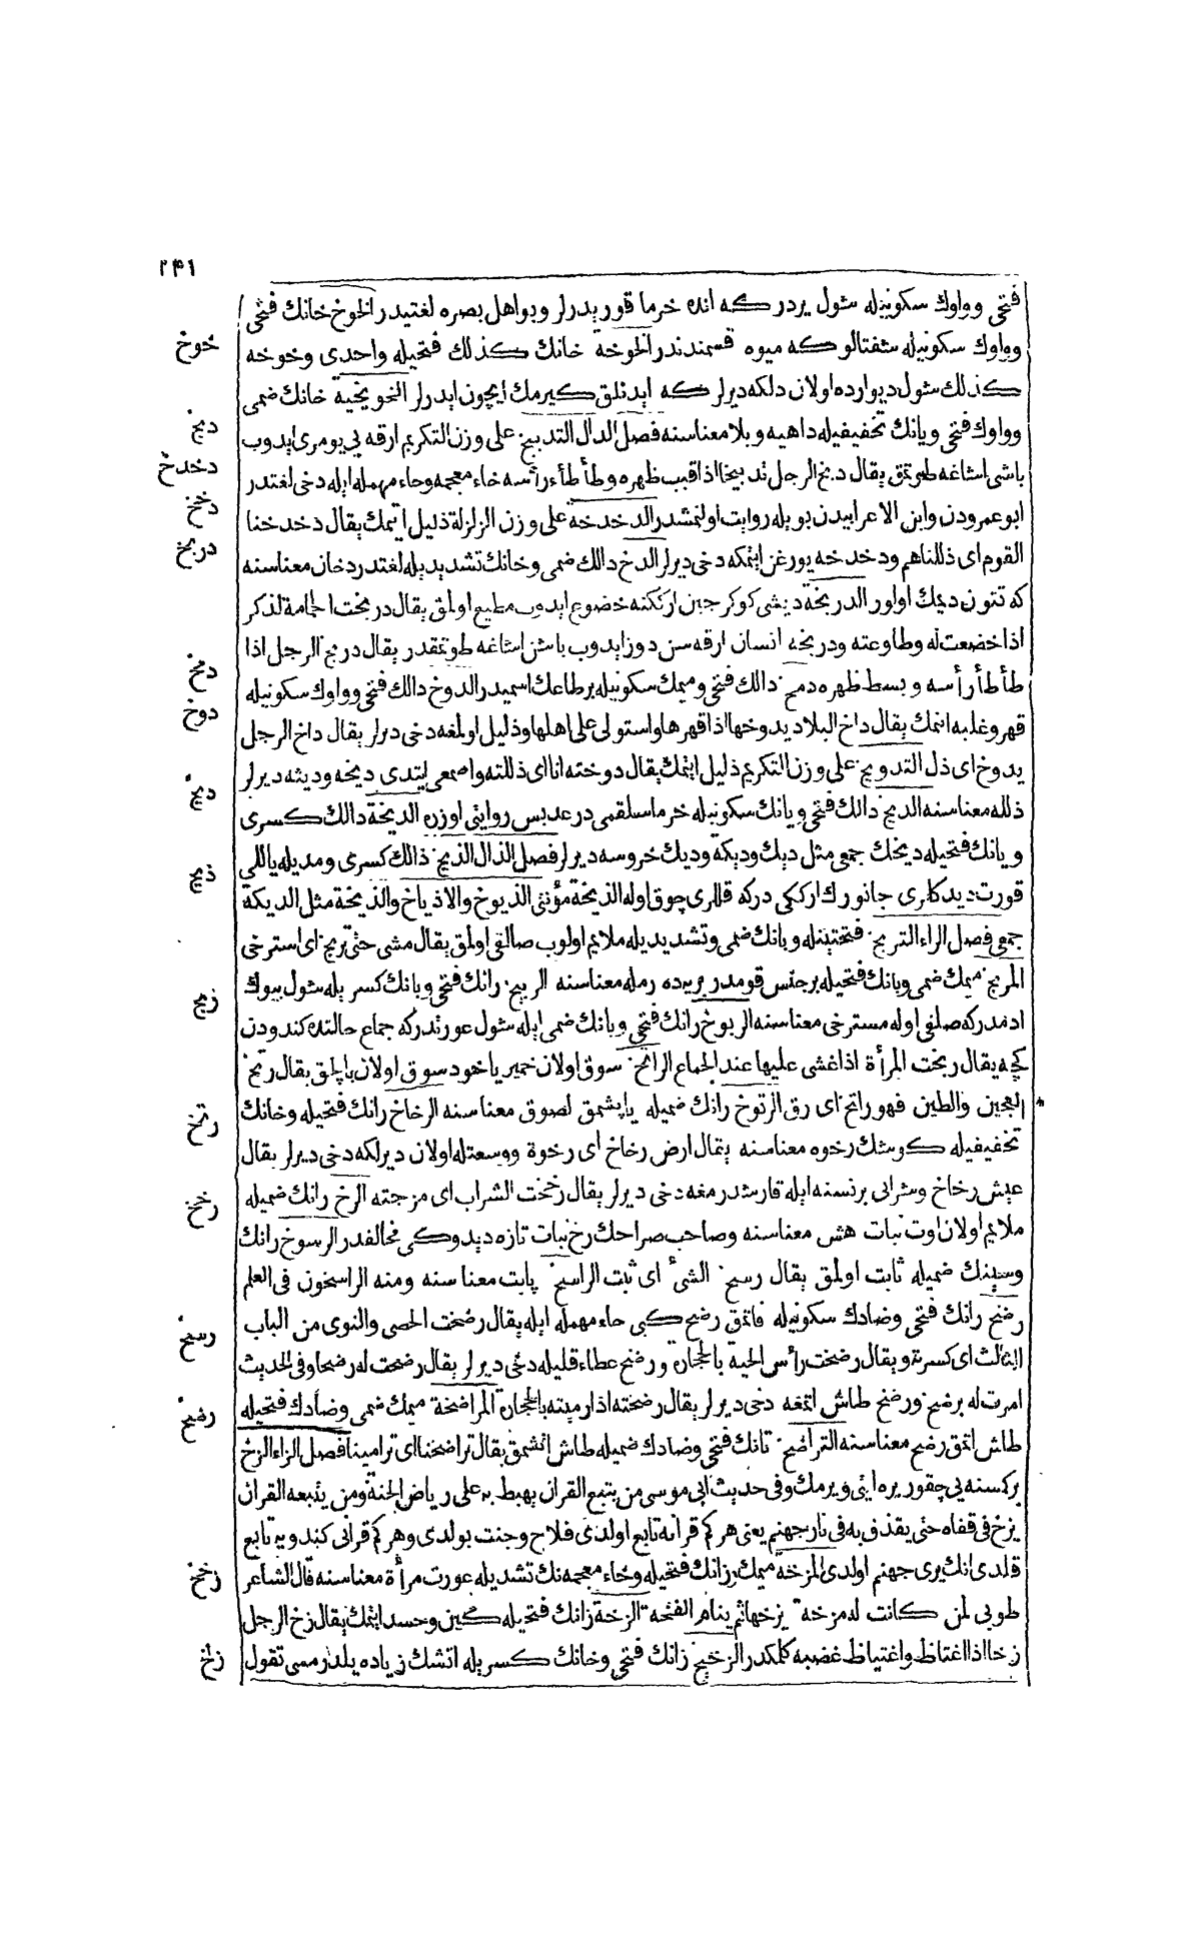 ٢٤١
فتحى وواوك سكونيله شول يردر كه انده خرما قوريدرلر وبو اهل بصره لغتيدر الخوخ خانك فتحى
وواوك سكونيله شفتالو كه ميوه قسمندندر الخوخة خانك كذلك فتحيله واحدى وخوخه
خوخ
كذلك شول ديوارده اولان دلكه ديرلر كه ايدنلق كيرمك ايچون ايدرلر الخويخية خانك ضمى
وواوك فتحى ويانك تخفيفيله داهيه وبلا معناسنه فصل الدال التدبيخ على وزن التكريم ارقه يى يومرى ايدوب
دبخ
باشى اشاغه طوتمق يقال دبخ الرجل تدبيخا اذا قبب ظهره وطأطأ رأسه خاء معجمه وحاء مهمله ايله دخى لغتدر
دخدخ
ابو عمرودن وابن الاعرابيدن بويله روايت اولنمشدر الدخدخة على وزن الزلزلة ذليل اتمك يقال دخدخنا
دخخ
القوم اى ذللناهم ودخدخه يورغن ايتمكه دخى ديرلر الدخ دالك ضمى وخانك تشديديله لغتدر دخان معناسنه
دربخ
كه تتون ديمك اولور الدربخة ديشى كوكرجين ارككنه خضوع ايدوب مطيع اولمق يقال دربخت الحمامة لذكر
اذا خضعت له وطاوعته ودربخه انسان ارقه سن دوز ايدوب باشن اشاغه طوتمقدر يقال دربخ الرجل اذا
طأطأ رأسه وبسط ظهره دمخ دالك فتحى وميمك سكونيله بر طاعك اسميدر الدوخ دالك فتحى وواوك سكونيله
دمخ
قهر وغلبه اتمك يقال داخ البلاد يدوخها اذا قهرها واستولى على اهلها وذليل اولمغه دخى ديرلر يقال داخ الرجل
دوخ
يدوخ اى ذل التدويخ على وزن التكريم ذليل ايتمك يقال دوخته انا اى ذللته واصمعى ايتدى ديخه وديثه ديرلر
ذلله معناسنه الديخ دالك فتحى ويانك سكونيله خرما سلقمى در عدبس روايتى اوزره الديخة دالك كسرى
ديخ
ويانك فتحيله ديخك جمعى مثل ديك وديكه وديك خروسه ديرلر فصل الذال الذيخ ذالك كسرى ومديله يللى
قورت ديدكلرى جانورك ارككى دركه قللرى چوق اوله الذيخة مؤنثى الذيوخ والاذياخ والذيخة مثل الديكة
ذيخ
جمعى فصل الراء التربخ فتحتينله وبانك ضمى وتشديديله ملايم اولوب صالقى اولمق يقال مشى حتى تربخ اى استرخى
المربخ ميمك ضمى وبانك فتحيله بر جنس قومدر بريده رمله معناسنه الربيخ رانك فتحى وبانك كسريله شول بيوك
ربخ
ادمدركه صلفى اوله مسترخى معناسنه الربوخ رانك فتحى وبانك ضمى ايله شول عورتدركه جماع حالتنده كندودن
كچه يقال ربخت المرأة اذا غشى عليها عند الجماع الراتخ سوق اولان خمير ياخود سوق اولان بالچق يقال رتخ
العجين والطين فهو راتخ اى رق الرتوخ رانك ضميله ياپشمق لصوق معناسنه الرخاخ رانك فتحيله وخانك
رتخ
تخفيفيله كوشك رخوه معناسنه يقال ارض رخاخ اى رخوة ووسعتله اولان ديرلكه دخى ديرلر يقال
عيش رخاخ وشرابى برنسنه ايله قارشدرمغه دخى ديرلر يقال رخخت الشراب اى مزجته الرخ رانك ضميله
رخخ
ملايم اولان اوت نبات هش معناسنه وصاحب صراحك رخ نبات تازه ديدوكى مخالفدر الرسوخ رانك
وسينك ضميله ثابت اولمق يقال رسخ الشئ اى ثبت الراسخ پابت معناسنه ومنه الراسخون فى العلم
رضخ رانك فتحى وضادك سكونيله فاتمق رضح كبى حاء مهمله ايله يقال رضخت الحصى والنوى من الباب
رسخ
الثالث اى كسرته ويقال رضخت رأس الحية بالحجارة ورضخ عطاء قليله دخى ديرلر يقال رضخت له رضخا وفى الحديث
امرت له برضخ ورضخ طاش اتمغه دخى ديرلر يقال رضخته اذا رميته بالحجارة المراضخة ميمك ضمى وضادك فتحيله
رضخ
طاش اتمق رضخ معناسنه التراضخ تانك فتحى وضادك ضميله طاش اتشمق يقال تراضخنا اى ترامينا فصل الزاء الزخ
بر كسنه يى چقور يره ايتى ويرمك وفى حديث ابى موسى من يتبع القران يهبط به على رياض الجنة ومن يتبعه القران
يزخ فى قفاه حتى يقذف به فى نار جهنم يعنى هر كم قرانه تابع اولدى فلاح وجنت بولدى وهر كم قرانى كندويه تابع
قلدى انك يرى جهنم اولدى المزخه ميمك وزانك فتحيله وخاء معجمه نك تشديديله عورت مرأة معناسنه قال الشاعر
زخخ
طوبى لمن كانت له مزخه يزخها ثم ينام الفخه الزخة زانك فتحيله كين وحسد ايتمك يقال زخ الرجل
زخا اذا اغتاظ واغتياظ غضبه كلمكدر الزخيخ زانك فتحى وخانك كسريله اتشك زياده يلدرمسى تقول
زخ